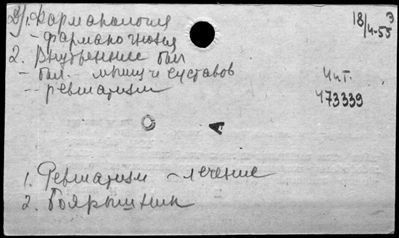 2/1. Фармакология
18/4-55 э
- фармакогнозия
2. Внутренние бол
- бол. мышц и суставов
Ч и Т.
-- ревматизм
473339
1. Ревматизм - лечение
2. Боярышник